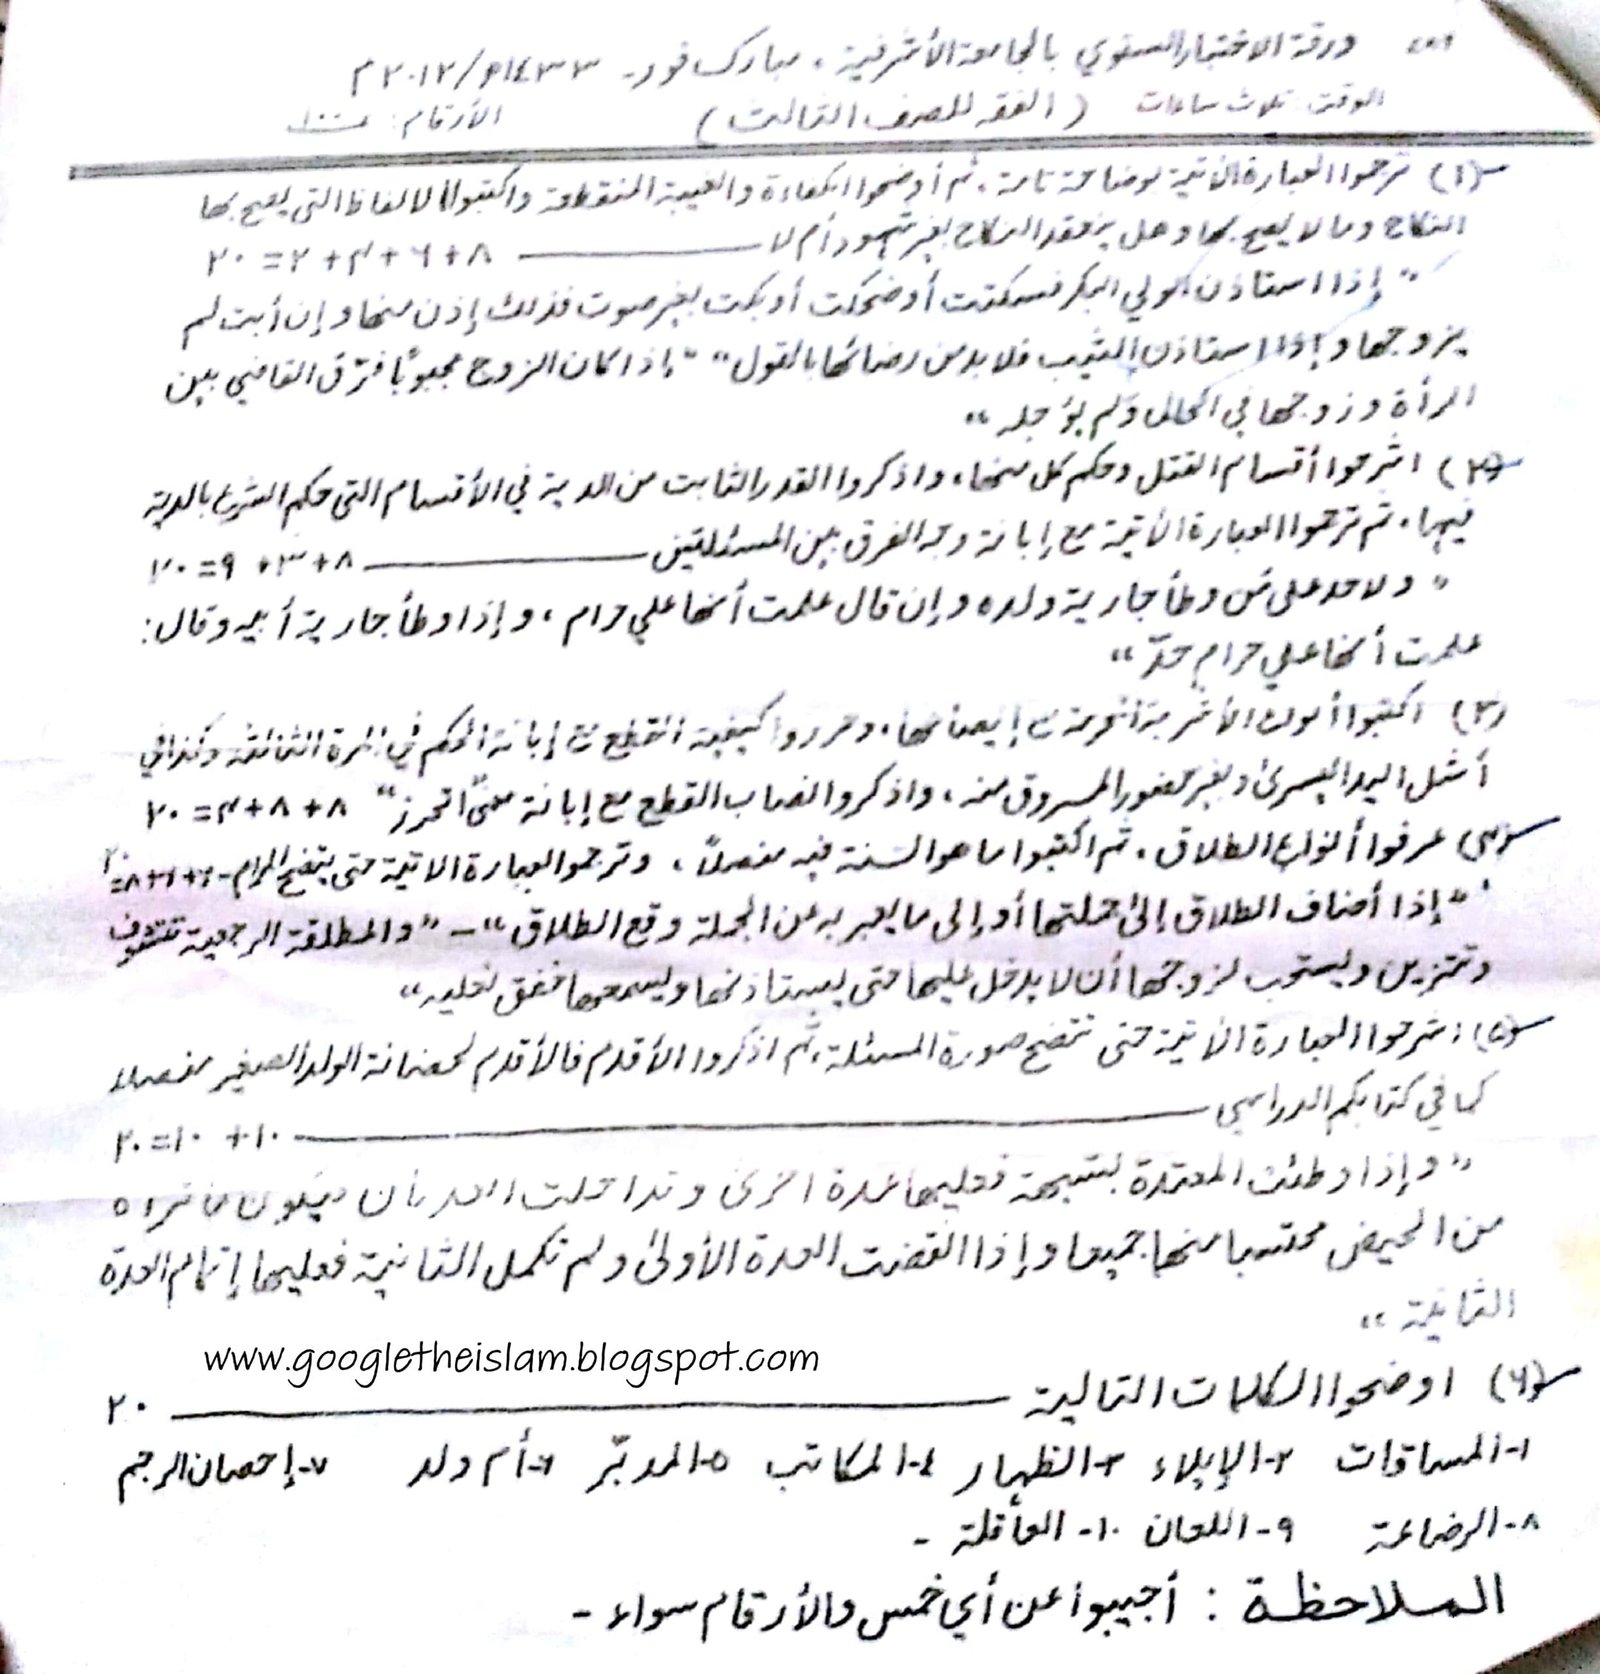 ورقة الاختبار السنوي بالجامعة الأشرفية، مباركفور - ١٤٣٣ھ/٢٠١٢م
الوقت: ثلاث ساعات (الفقه للصف الثالث) الأرقام: ١٠٠
(١) ترجموا العبارة الآتية بوضاحة تامة، ثم أوضحوا الكفاءة والغيبة المنقطعة واكتبوا الالفاظ التي يصح بها
النكاح وما لا يصح بها وهل ينعقد النكاح بغير شهود أم لا ــــــ ٨+٦+٤+٢=٢٠
"إذا استاذن الولي البكر فسكتت أو ضحكت أو بكت بغير صوت فذلك إذن منها وإن أبت لم
يزوجها وإذا استاذن الثيب فلا بد من رضائها بالقول" "إذا كان الزوج مجبوبًا فرّق القاضي بين
المرأة وزوجها في الحال ولم يؤجله"
(٢) اشرحوا أقسام القتل وحكم كل منها، واذكروا القدر الثابت من الدية في الأقسام التي حكم الشرع بالدية
فيها، ثم ترجموا العبارة الأتية مع إبانة وجه الفرق بين المسئلتين ــــــ ٨+٣+٩=٢٠
"ولا حد على من وطأ جارية ولده وإن قال علمت أنها علي حرام، وإذا وطأ جارية أبيه وقال:
علمت أنها علي حرام حدّ"
(٣) اكتبوا الأشربة المحرمة مع إيضاحها، وحرروا كيفية القطع مع إبانة الحكم في المرة الثالثة وكذا في
أشل اليد اليسرى وبغير حضور المسروق منه، واذكروا نصاب القطع مع إبانة معنى "الحرز" ٨+٨+٤=٢٠
(٤) عرفوا أنواع الطلاق، ثم اكتبوا ما هو السنة فيه مفصلاً، وترجموا العبارة الاتية حتى يتضح المرام - ٦+٦+٨=٢٠
"إذا أضاف الطلاق إلى جملتها أو إلى ما يعبر به عن الجملة وقع الطلاق" - "والمطلقة الرجعية تتشوف
وتتزين ويستحب لزوجها أن لا يدخل عليها حتى يستاذنها ويسمعها خفق نعليه"
(٥) اشرحوا العبارة الأتية حتى تتضح صورة المسئلة، ثم اذكروا الأقدم فالأقدم لحضانة الولد الصغير مفصلا
كما في كتابكم الدراسي ــــــ ١٠+١٠=٢٠
"وإذا وطئت المعتدة بشبهة فعليها عدة اخرى وتداخلت العدتان فيكون ما تراه
من الحيض محتسبا منها جميعا وإذا انقضت العدة الأولى ولم تكمل الثانية فعليها إتمام العدة
الثانية"
www.googletheislam.blogspot.com
(٦) اوضحوا الكلمات التالية ــــــ ٢٠
١-المساقات ٢-الإيلاء ٣-الظهار ٤-المكاتب ٥-المدبّر ٦-أم ولد ٧-إحصان الرجم
٨-الرضاعة ٩-اللعان ١٠-العاقلة -
الملاحظة: أجيبوا عن أي خمس والأرقام سواء -